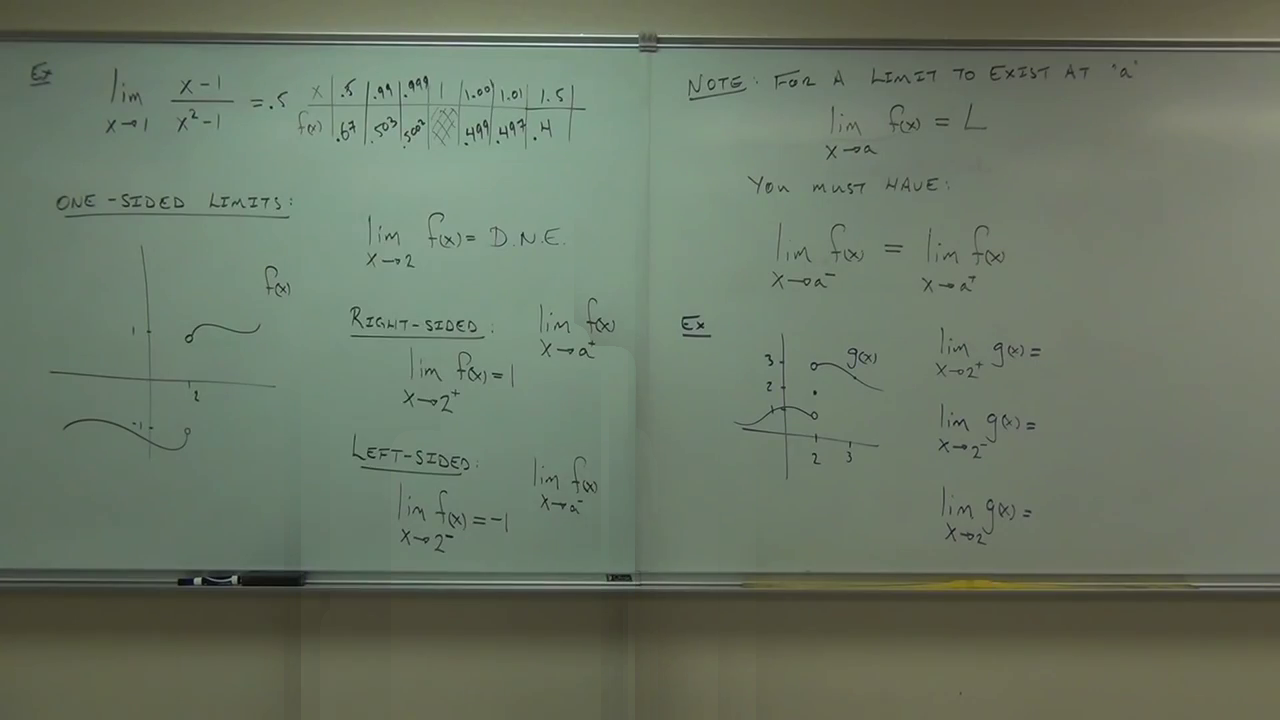 Ex
lim x→1 (x-1)/(x²-1) = .5
x | .5 | .99 | .999 | 1 | 1.001 | 1.01 | 1.5
f(x) | .67 | .503 | .5002 | | .499 | .497 | .4
ONE-SIDED LIMITS:
f(x)
1
2
-1
lim x→2 f(x) = D.N.E.
RIGHT-SIDED: lim x→a⁺ f(x)
lim x→2⁺ f(x) = 1
LEFT-SIDED: lim x→a⁻ f(x)
lim x→2⁻ f(x) = -1
NOTE: FOR A LIMIT TO EXIST AT "a"
lim x→a f(x) = L
YOU MUST HAVE:
lim x→a⁻ f(x) = lim x→a⁺ f(x)
Ex
3
g(x)
2
1
2 3
lim x→2⁺ g(x) =
lim x→2⁻ g(x) =
lim x→2 g(x) =